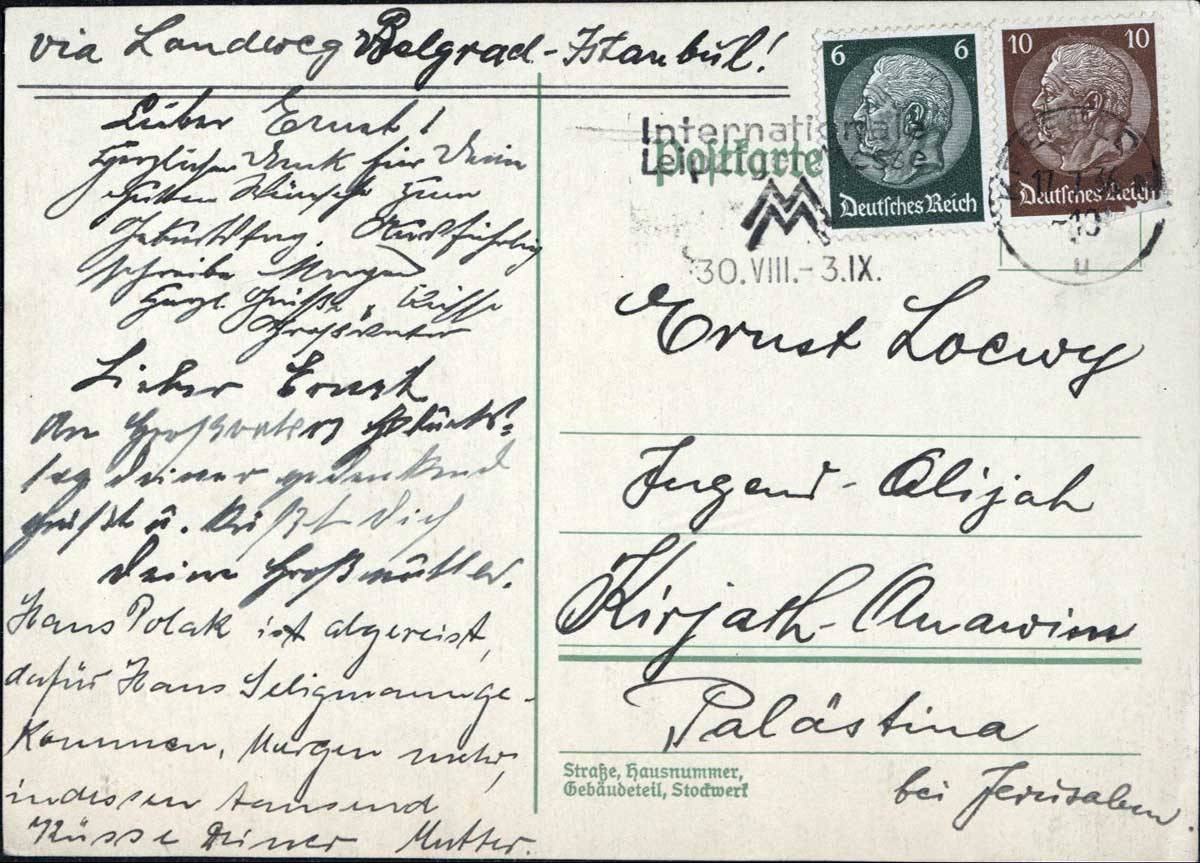 via Landweg Belgrad-Istanbul!
Lieber Ernst!
Herzlichen Dank für Deine
guten Wünsche zum
Geburtstag. Ausführlich
schreibe Morgen
Herzl. Grüße, Küsse
Großvater
Lieber Ernst
An Großvaters Geburts=
tag deiner gedenkend
grüßt u. küßt Dich
Deine Großmutter.
Hans Polak ist abgereist,
dafür Hans Seligmann ge-
kommen. Morgen mehr,
indessen tausend
Küsse Deiner Mutter.
6 6
Deutsches Reich
10 10
Deutsches Reich
Postkarte
Internationale
Leipziger Messe
M M
30.VIII.-3.IX.
KREFELD
17.7.36
u
Ernst Loewy
Jugend-Alijah
Kirjath-Anawim
Palästina
bei Jerusalem.
Straße, Hausnummer,
Gebäudeteil, Stockwerk